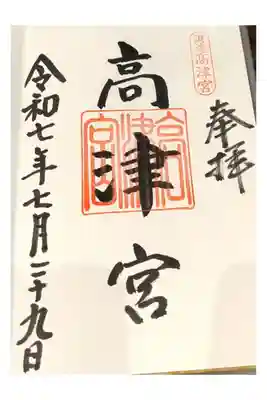 奉拝
高津宮
高津宮
高津宮
令和七年七月二十九日